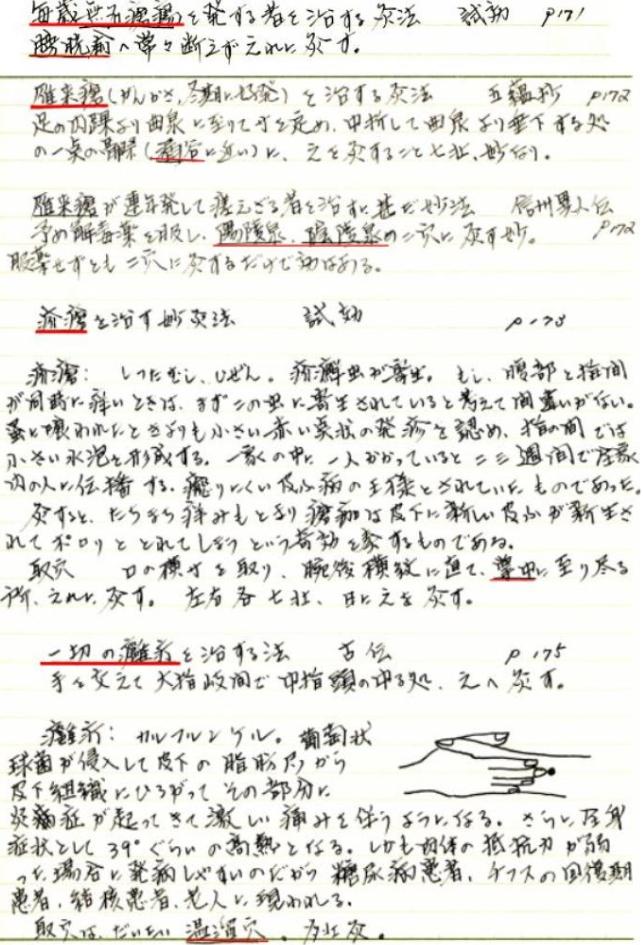 毎歳 瘡瘍を発する者を治する灸法 試効 P171
膀胱兪へ常々断えずこれに灸す。
雁来瘡(がんがさ、冬期に好発)を治する灸法 五蘊抄 P172
足の内踝より曲泉に至りて寸を定め、中折して曲泉より垂下する処
の一点の に、之を灸すること七壮、妙なり。
雁来瘡が連年発して癒えざる者を治すに甚だ妙法 信州異人伝
予め解毒薬を服し、陽陵泉、陰陵泉の二穴に灸す妙。 P172
服薬せずとも二穴に灸するだけで効はある。
疥瘡を治す妙灸法 試効 P173
疥瘡: しつたむし、ひぜん。疥癬虫が寄生。もし、腹部と指間
が同時に痒いときは、まずこの虫に寄生されていると考えて間違いがない。
蚤に喰われたときよりも小さい赤い点状の発疹を認め、指の間では
小さい水泡を形成する。一家の中に一人かかっていると二三週間で全家
内の人に伝播する、癒りにくい皮ふ病の王様とされていたものであった。
灸すると、たちまち痒みもとまり瘡痂は皮下に新しい皮ふが新生さ
れてポロリととれてしまうという奇効を奏するものである。
取穴 口の横寸を取り、腕後横紋に直て、掌中に至り尽る
所、これに灸す。左右各七壮、日に之を灸す。
一切の癰疔を治する法 古伝 P175
手を交えて大指岐間で中指頭の中る処、之へ灸す。
癰疔: カルフンケル。葡萄状
球菌が侵入して皮下の脂肪 から
皮下組織にひろがってその部分に
炎症が起ってきて激しい痛みを伴うようになる。さらに全身
症状として39°ぐらいの高熱となる。しかも肉体の抵抗力が弱
った場合に発病しやすいのだから糖尿病患者、チフスの回復期
患者、結核患者、老人に現われる。
取穴は、だいたい温溜穴。多壮灸。